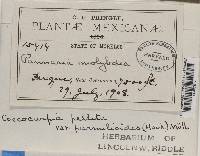 C. G. PRINGLE,
PLANTÆ MEXICANÆ.
STATE OF MORELOS
Pannaria molybdea
7500 ft.
29 July, 1908.
Coccocarpia pellita
var. parmelioides (Hook) Müll.
HERBARIUM OF
LINCOLN W. RIDDLE